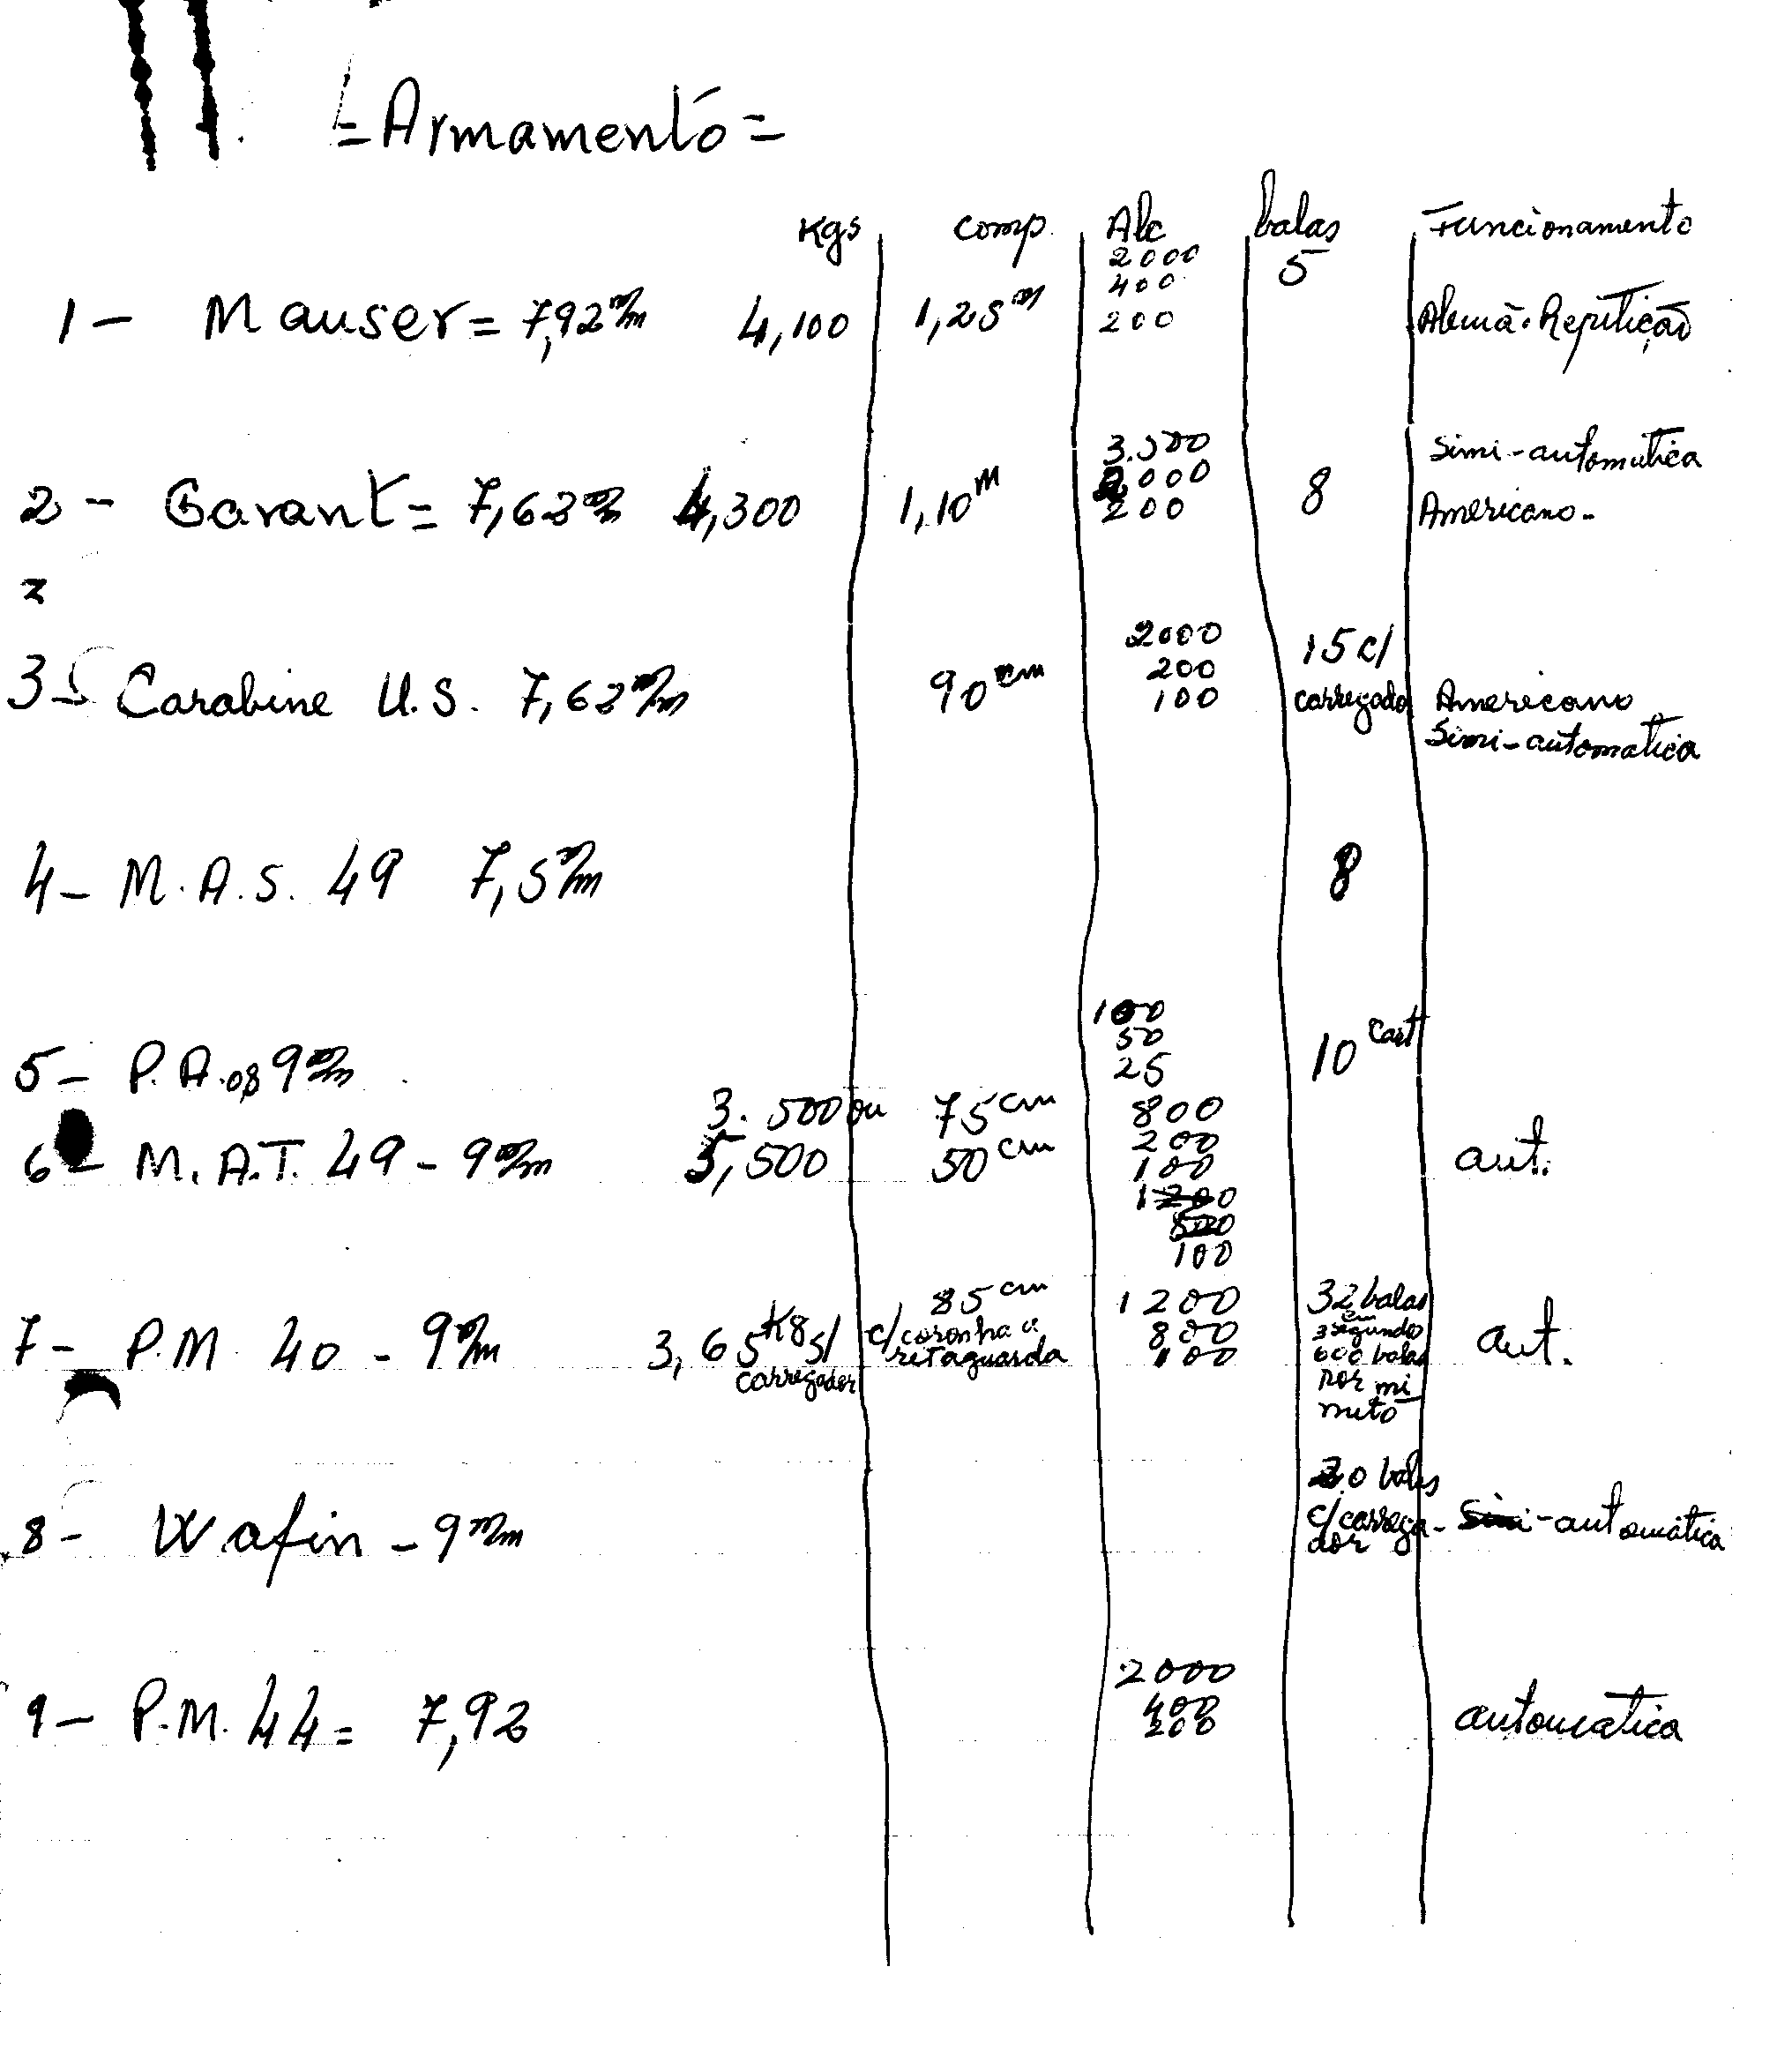 =Armamento=
Kgs comp. Alc balas Funcionamento
2000 5
400
1- Mauser= 7,92 m/m 4,100 1,25m 200 Alemã. Repitição
3.500 Simi-automatica
2000
2- Garant= 7,62 m/m 4,300 1,10m 200 8 Americano-
2000 15 c/
200
3- Carabine U.S. 7,62 m/m 90 cm 100 carregado Americano
Simi-automatica
4- M.A.S. 49 7,5 m/m 8
100
50 10 Cart
5- P.A.08 9 m/m 25
3.500 ou 75 cm 800
200
6- M.A.T. 49-9 m/m 5,500 50 cm 100 aut.
1200
500
100
85 cm 1200 32 balas
em
7- P.M 40-9 m/m 3,65 Kgs s/ c/coronha a 800 3 segundo aut.
carregador retaguarda 100 600 balas
por mi
nuto
20 balas
8- Wafin-9 m/m c/carrega- Simi-automática
dor
2000
400
9- P.M. 44= 7,92 200 automatica